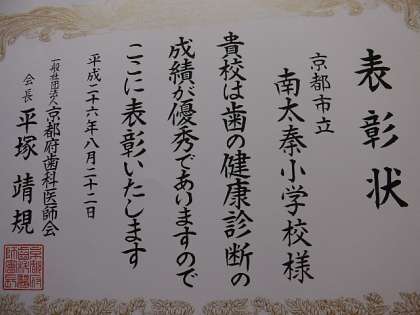 表彰状
京都市立
南太秦小学校様
貴校は歯の健康診断の
成績が優秀でありますので
ここに表彰いたします
平成二十六年八月二十二日
一般社団法人京都府歯科医師会
会長 平塚靖規